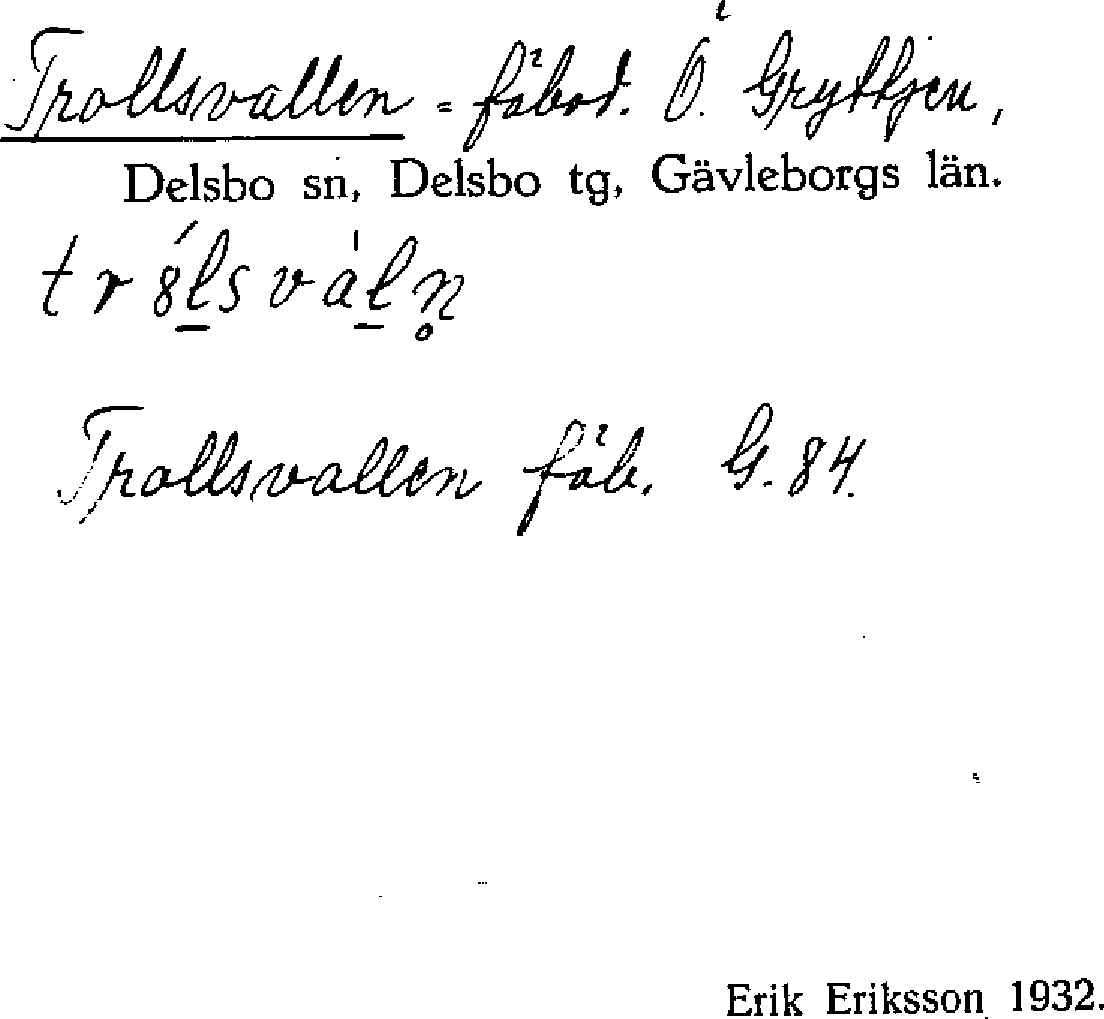 Trollsvallen = fäbod. Ö. Gryttjen,
Delsbo sn, Delsbo tg, Gävleborgs län.
tr8́lsvàln̥
Trollsvallen fäb. G. 84.
Erik Eriksson 1932.